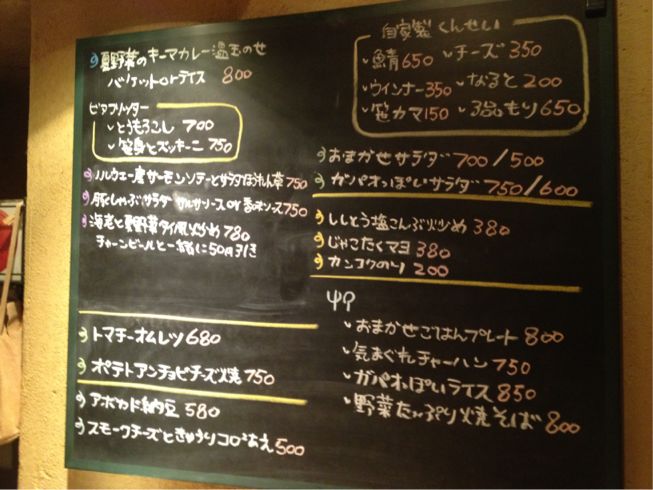 夏野菜のキーマカレー温玉のせ
バケットorライス 800
ビアフリッター
とうもろこし 700
笹身とズッキーニ 750
ノルウェー産サーモンソテーとサラダほうれん草 750
豚しゃぶサラダ サルサソース or 香味ソース 750
海老と夏野菜タイ風炒め 780
チャーンビールと一緒に50円引き
トマチーオムレツ 680
ポテトアンチョビチーズ焼 750
アボカド納豆 580
スモークチーズときゅうりコロコロあえ 500
自家製 くんせい
鯖 650
チーズ 350
ウインナー 350
なると 200
笹カマ 150
3品もり 650
おまかせサラダ 700/500
ガパオっぽいサラダ 750/600
ししとう塩こんぶ炒め 380
じゃこたくマヨ 380
カンコクのり 200
おまかせごはんプレート 800
気まぐれチャーハン 750
ガパオっぽいライス 850
野菜たっぷり焼そば 800